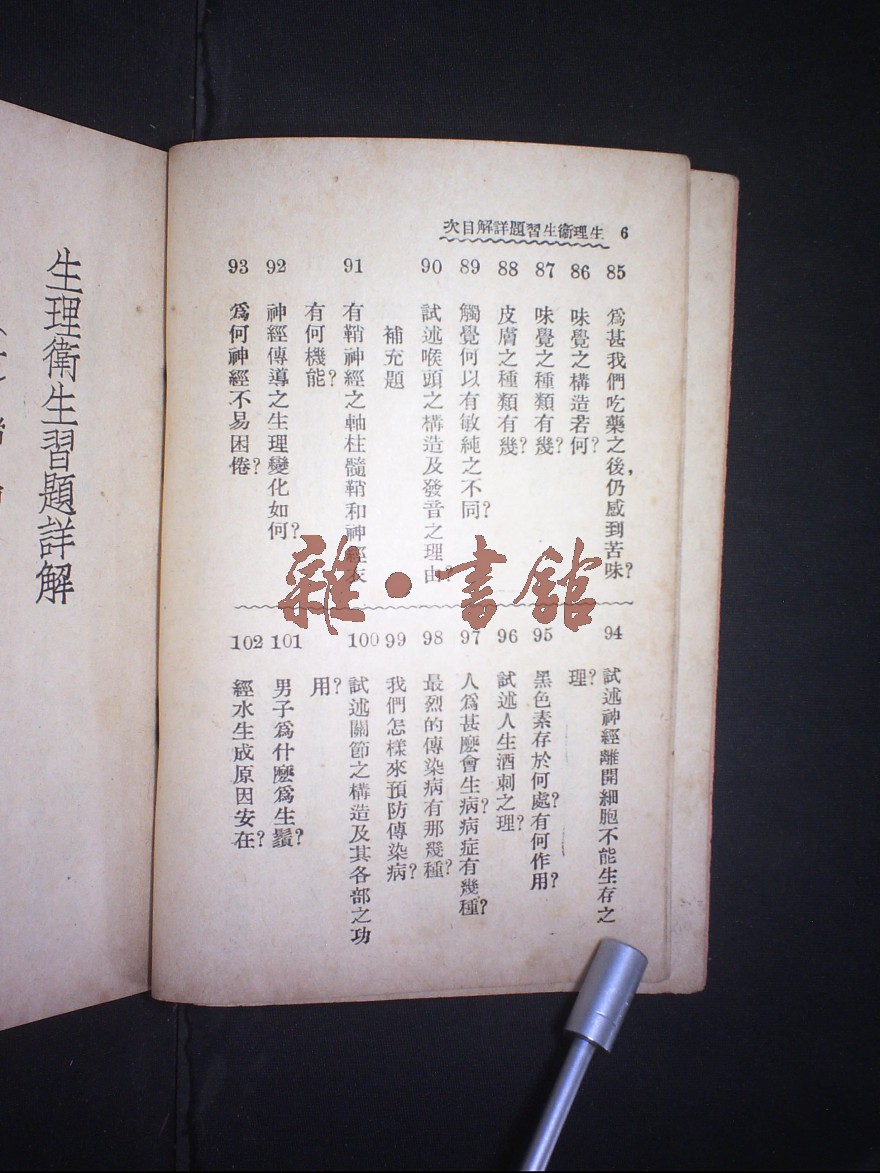 生理衞生習題詳解目次 6
85 爲甚我們吃藥之後,仍感到苦味?
86 味覺之構造若何?
87 味覺之種類有幾?
88 皮膚之種類有幾?
89 觸覺何以有敏純之不同?
90 試述喉頭之構造及發音之理由?
補充題
91 有鞘神經之軸柱髓鞘和神經衣
有何機能?
92 神經傳導之生理變化如何?
93 爲何神經不易困倦?
94 試述神經離開細胞不能生存之
理?
95 黑色素存於何處?有何作用?
96 試述人生酒刺之理?
97 人爲甚麽會生病?病症有幾種?
98 最烈的傳染病有那幾種?
99 我們怎樣來預防傳染病?
100 試述關節之構造及其各部之功
用?
101 男子爲什麽爲生鬚?
102 經水生成原因安在?
生理衞生習題詳解
雜·書館